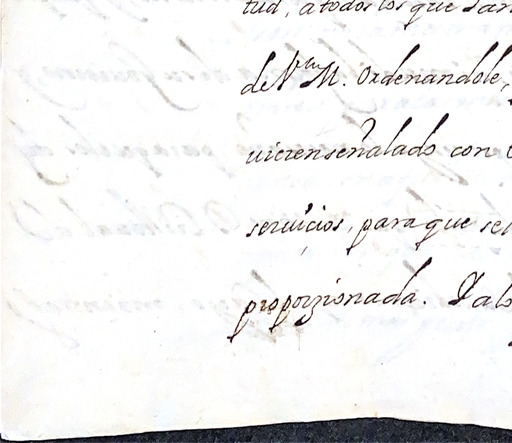 tud, a todos los que
de V.ra M. Ordenandole,
uieren señalado con
seruicios, para que se
proporzionada. Y a